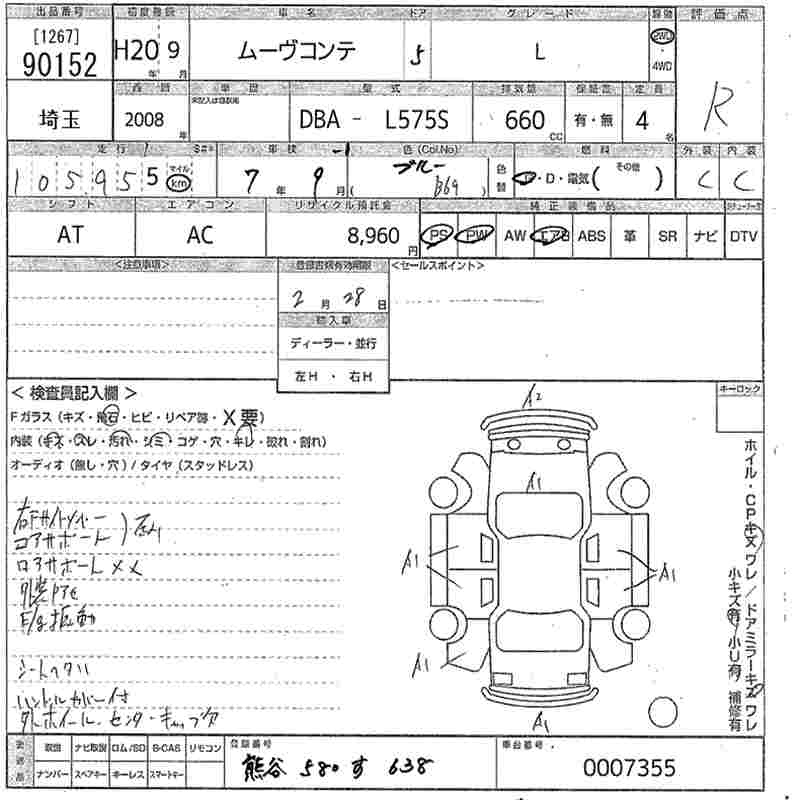 出品番号 初度登録 車名 ドア グレード 駆動 評価点
[1267]
90152 H20年 9月 ムーヴコンテ 5 L 2WD
4WD
R
埼玉
車歴
型式 排気量 保証書 定員
2008年 DBA - L575S 660CC 有・無 4名
走行 車検 色(Col.No) 燃料 外装 内装
105955 マイル km 7年 9月 ( ブルー B69 ) 色替 ・D・電気( その他 ) C C
シフト エアコン リサイクル預託金 純正装備品
AT AC 8,960円 PS PW AW エアB ABS 革 SR ナビ DTV
<注意事項> 登録書類有効期限 <セールスポイント>
2月 28日
輸入車
ディーラー・並行
左H ・ 右H
< 検査員記入欄 >
キーロック
Fガラス (キズ・飛石・ヒビ・リペア跡・X要)
内装 (キズ・スレ・汚れ・シミ・コゲ・穴・キレ・破れ・割れ)
オーディオ (無し・穴) / タイヤ (スタッドレス)
右Fサイドメンバー
コアサポート
ロアサポート メメ
E/g振動
シートヘタリ
ハンドルカバー付
ホイール・センターキャップ欠
A2
A1
A1
A1
A1
A1
ホイール・CPキズ ワレ / ドアミラーキズ ワレ
小キズ有 小U有 補修有
取説 ナビ取説 ロム/SD B-CAS リモコン 登録番号 車台番号
ナンバー スペアキー キーレス スマートキー 熊谷 580 す 638 0007355